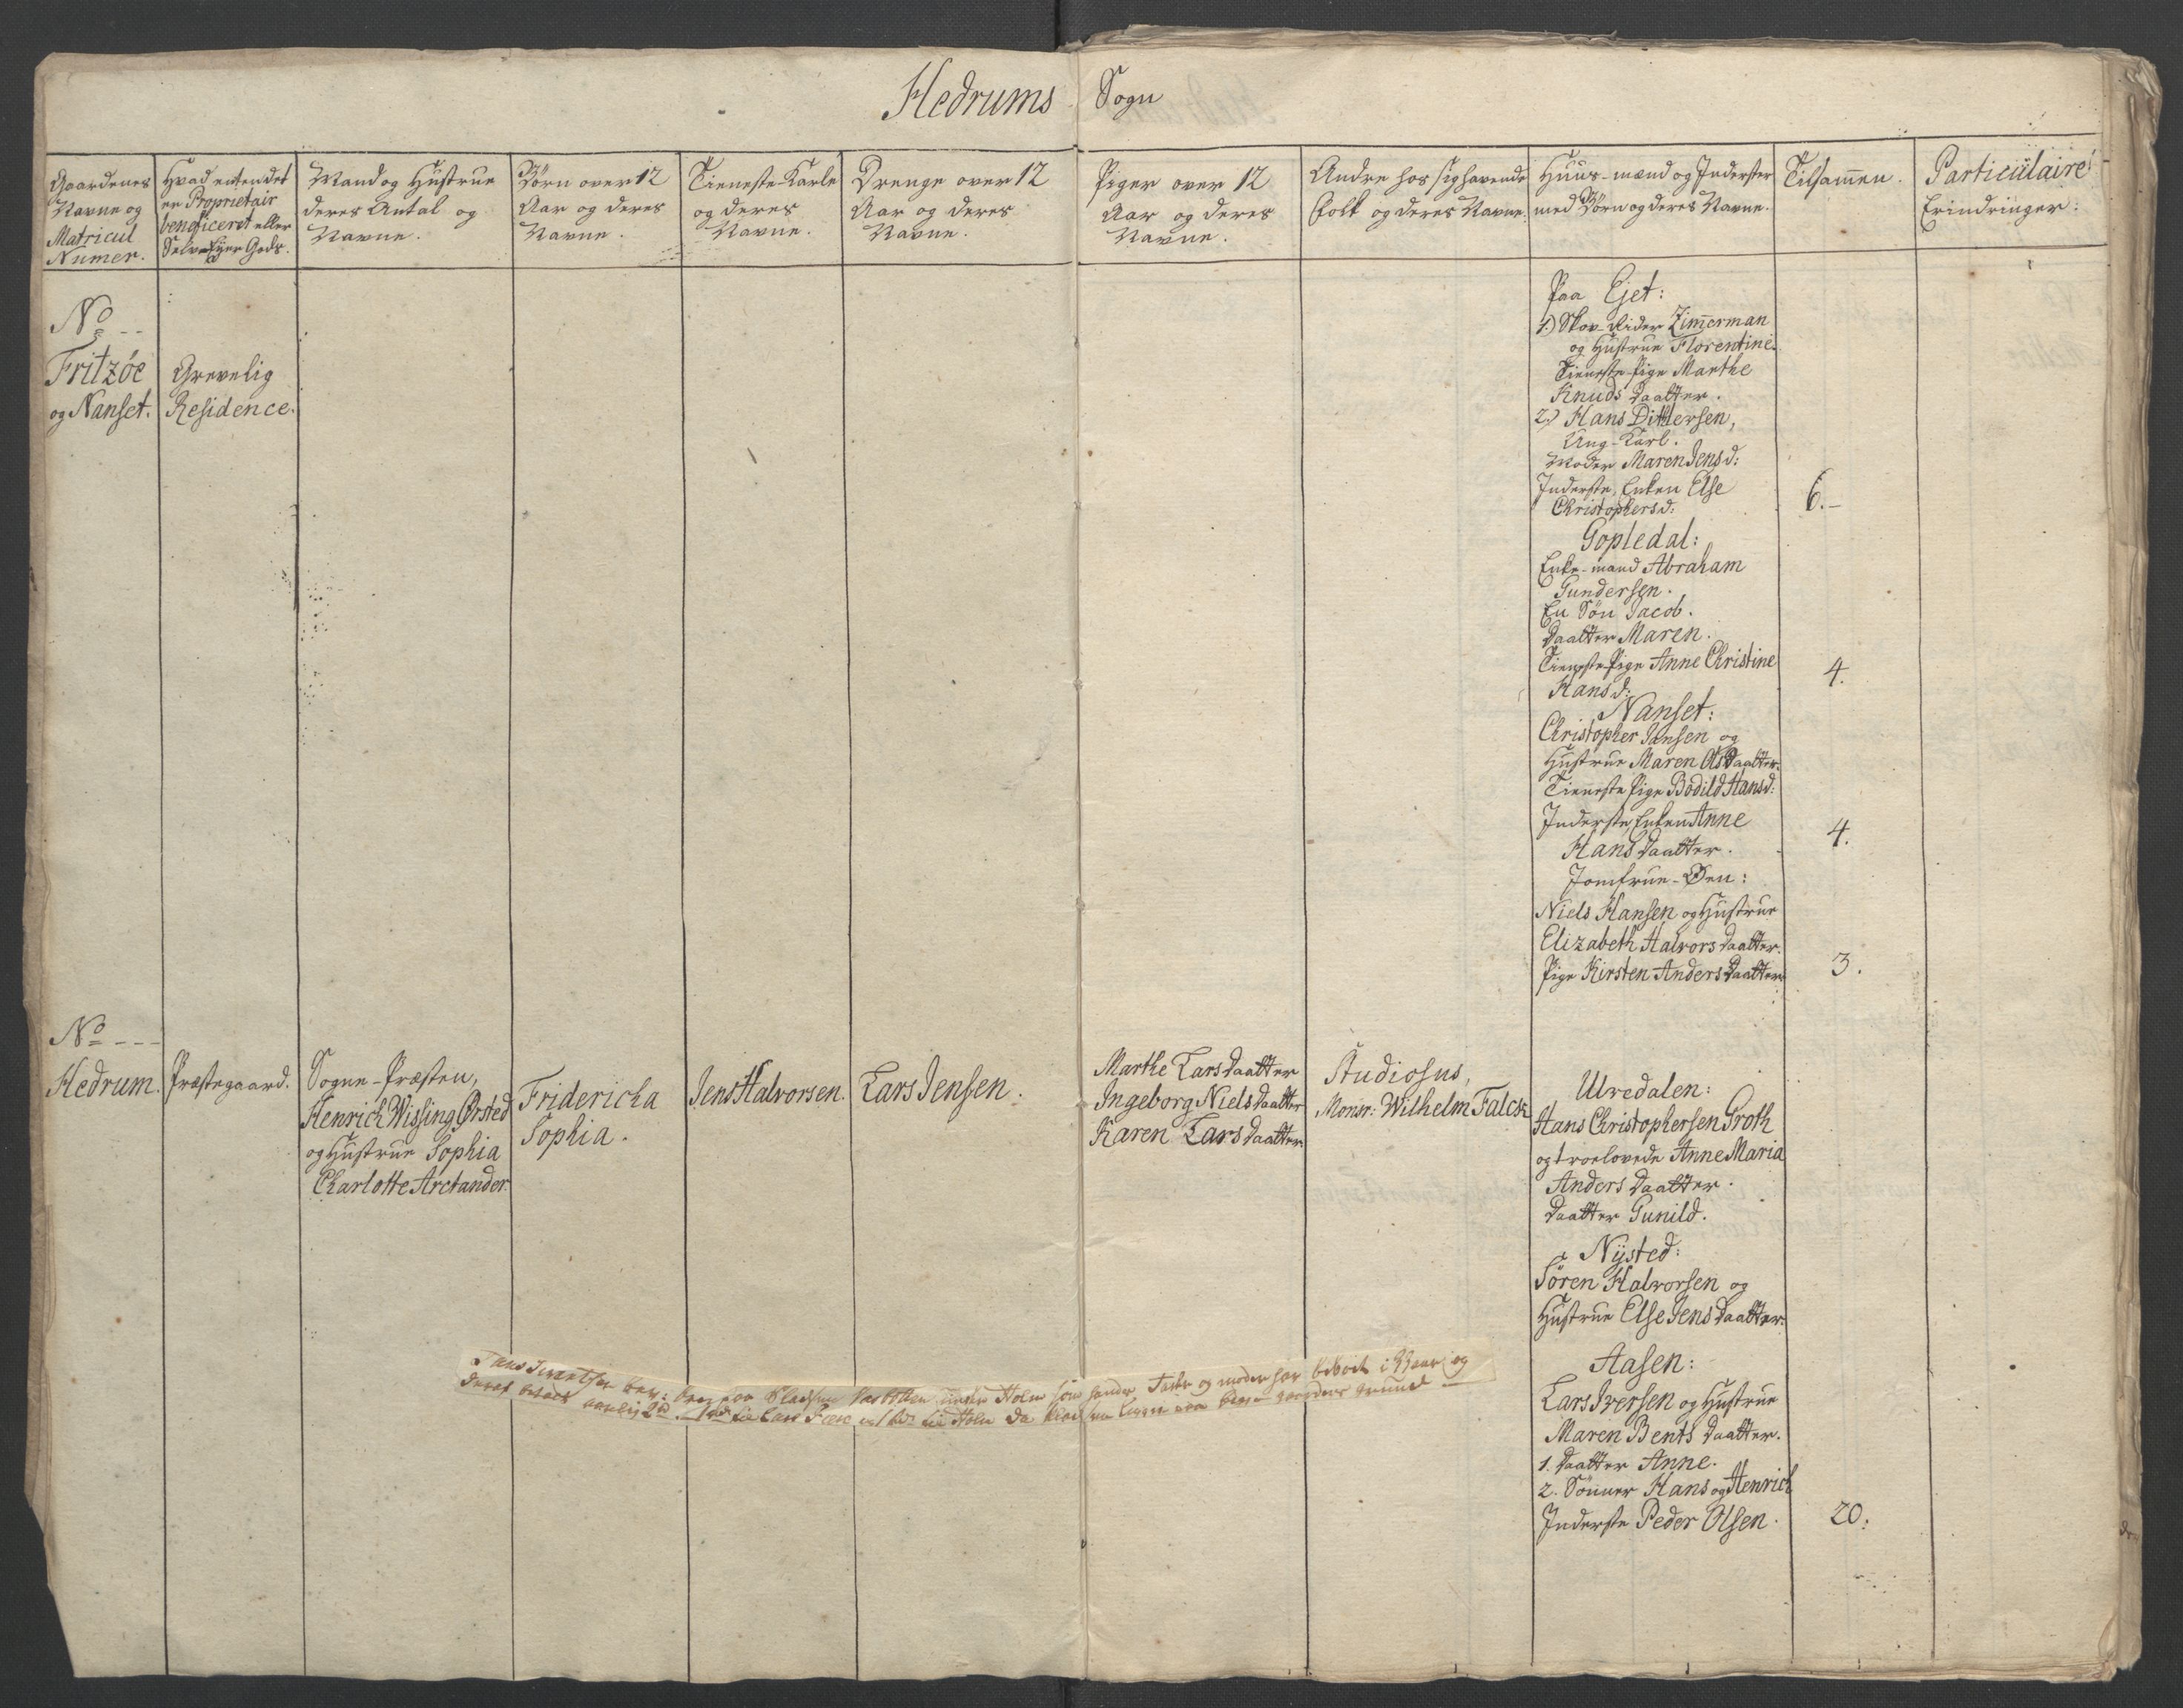 Hedrums Sogn
Gaardenes
Navne og
Matricul
Numer.
Hvad enten det
er Proprietair
beneficeret eller
Selv-Eyer Gods.
Mand og Hustrue
deres Antal og
Navne.
Börn over 12
Aar og deres
Navne.
Tieneste-Karle
og deres
Navne.
Drenge over 12
Aar og deres
Navne.
Piger over 12
Aar og deres
Navne.
Andre hos sig havende
Folk og deres Navne.
Huus-mænd og Inderster
med Börn og deres Navne.
Tilsammen.
Particulaire
Erindringer:
No --
Fritzöe
og Nanset.
Grevelig
Residence.
Paa Ejet:
1.) Skov-Rider Zimmerman
og Hustrue Florentine.
Tieneste-Pige Marthe
Knuds Daatter.
2.) Hans Dittlersen,
Ung-Karl.
Moder Maren Jensd:
Inderste, Enken Else
Christophersd:
6.-
Gopledal:
Enke-mand Abraham
Gundersen.
En Sön Jacob.
Daatter Maren.
Tieneste-Pige Anne Christine
Hansd:
4.
Nanset:
Christopher Jansen og
Hustrue Maren Ols Daatter.
Tieneste Pige Bodild Hansd:
Inderste, Enken Anne
Hans Daatter.
4.
Jomfrue-Øen:
Niels Hansen og Hustrue
Elizabeth Halvors Daatter.
Pige Kirsten Anders Daatter.
3.
No ---
Hedrum.
Præstegaard.
Sogne-Præsten,
Henrich Wissing Ørsted
og Hustrue Sophia
Charlotte Arctander.
Fridericha
Sophia.
Jens Halvorsen.
Lars Jensen.
Marthe Lars Daatter
Ingeborg Niels Daatter
Karen Lars Daatter
Studiosus,
Monsr: Wilhelm Falck
Ulvedalen:
Hans Christophersen Groth
og troelovede Anne Maria
Anders Daatter.
Daatter Gunild.
Nÿsted:
Sören Halvorsen og
Hustrue Else Jens Daatter.
Aasen:
Lars Iversen og Hustrue
Maren Bents Daatter.
1. Daatter Anne.
2. Sönner Hans og Henrich
Inderste Peder Olsen.
20.
Pladsen under Holm som hendes Fader og moder har beboet i aar og
deraf aarlig 2 til Lars og til Holm da grund